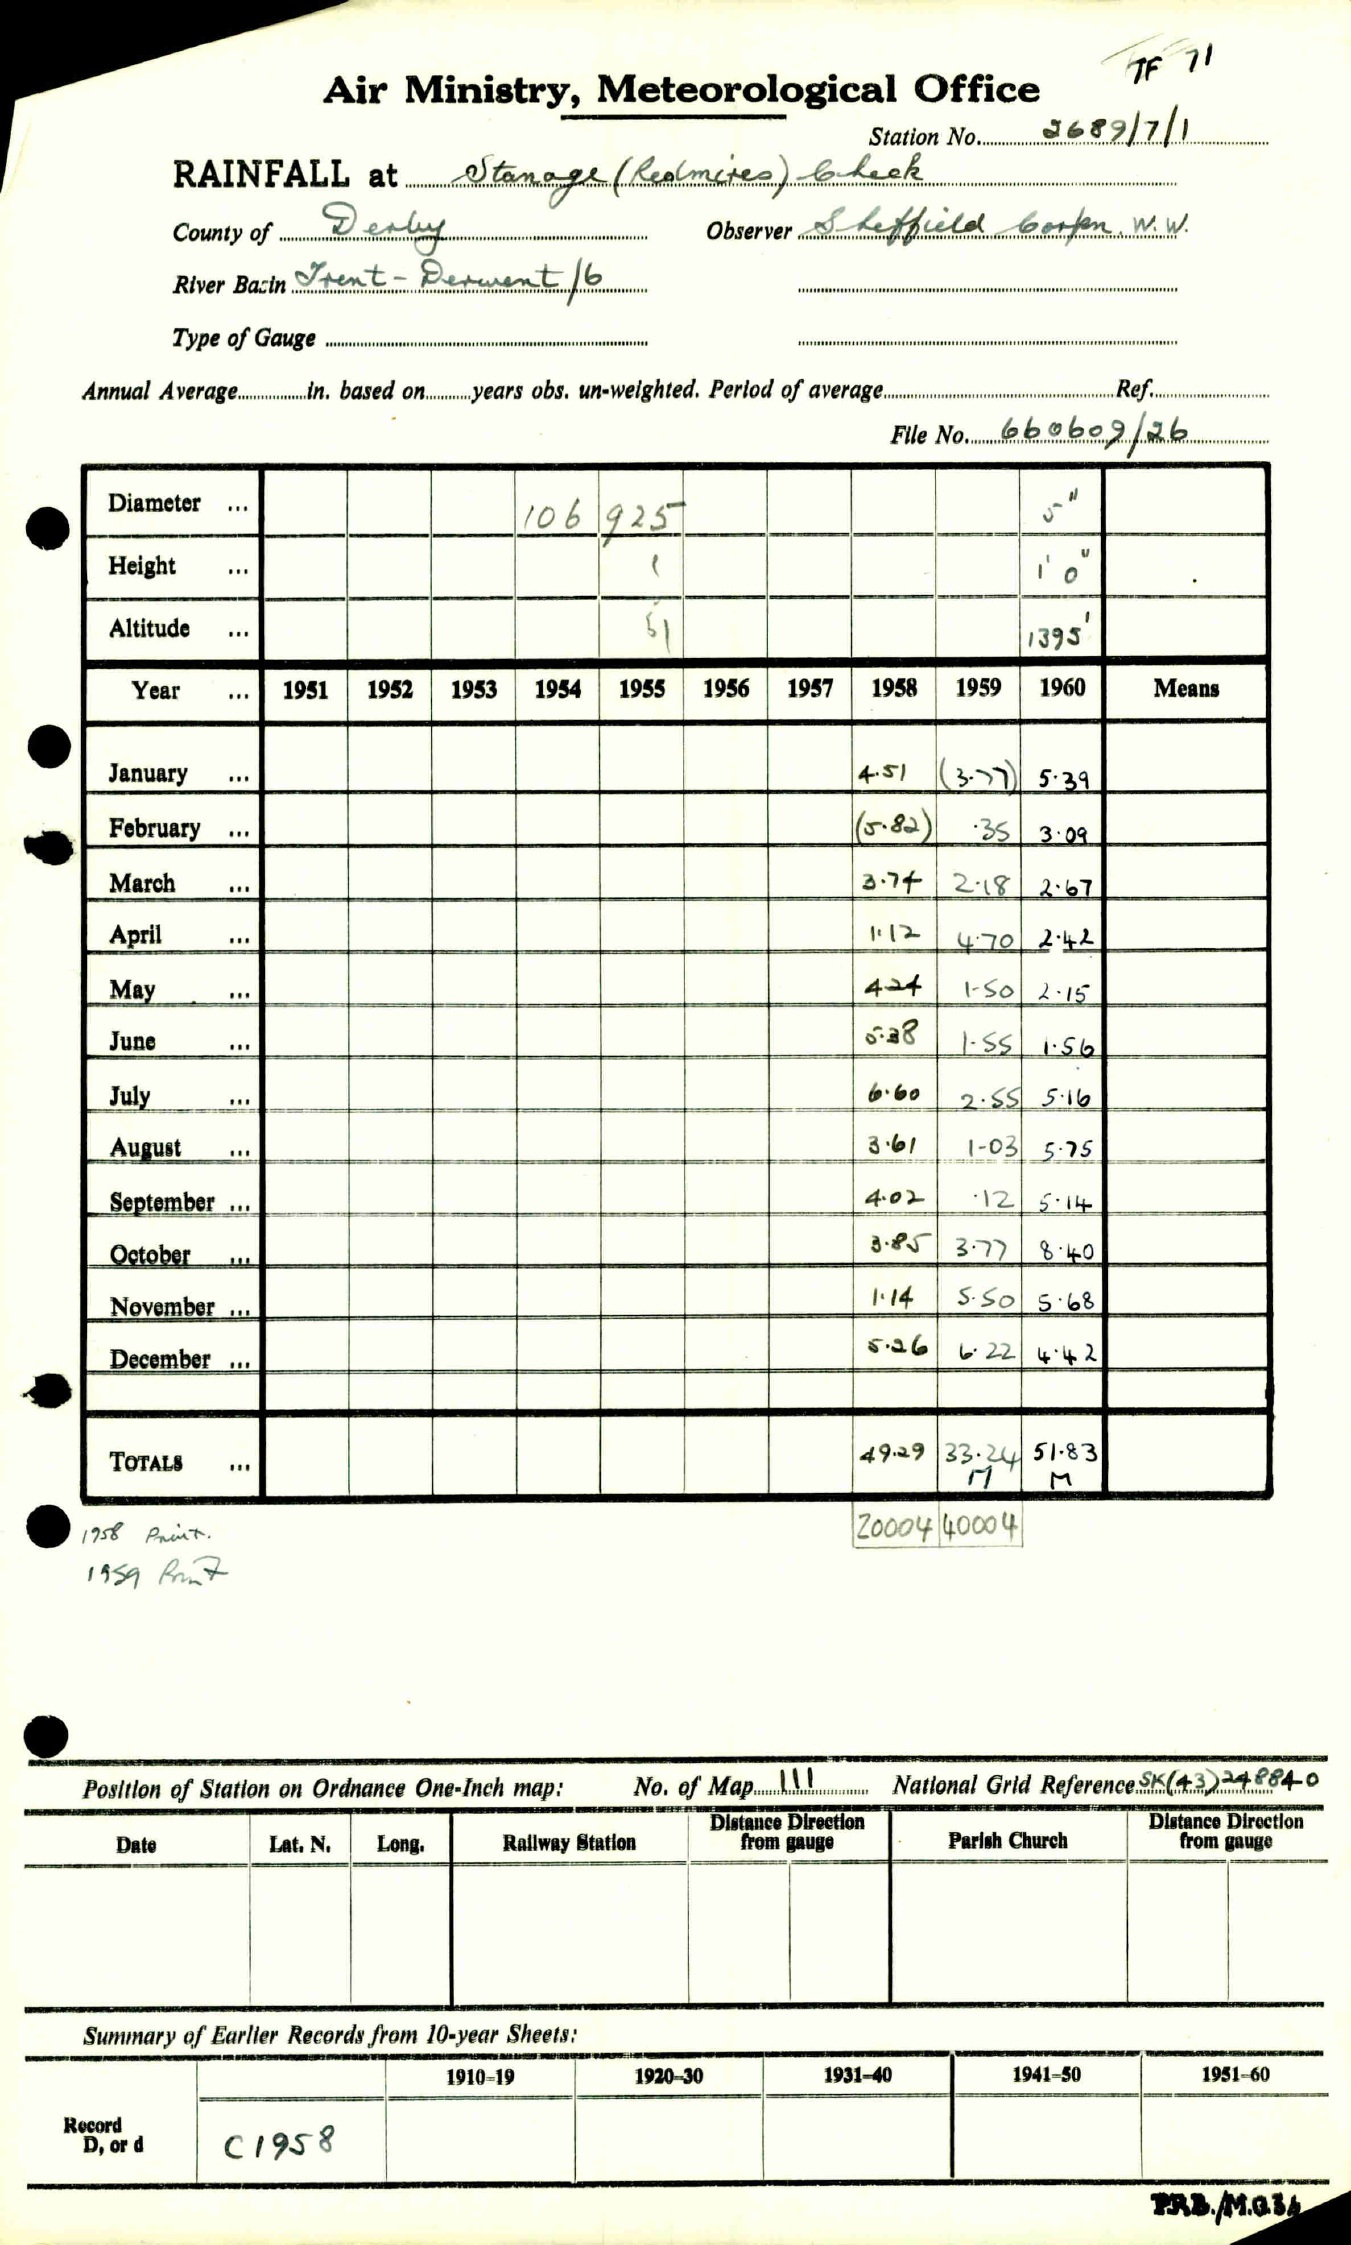 TF 71
Air Ministry, Meteorological Office
Station No. 2689/7/1
RAINFALL at Stanage (Redmires) Check
County of Derby Observer Sheffield Corpn. W.W.
River Basin Trent - Derwent/6
Type of Gauge
Annual Average in. based on years obs. un-weighted. Period of average Ref.
File No. 660609/26
Diameter ... 106 925 5"
Height ... 1 1' 0"
Altitude ... 51 1395'
Year ... 1951 1952 1953 1954 1955 1956 1957 1958 1959 1960 Means
January ... 4.51 (3.77) 5.39
February ... (5.82) .35 3.09
March ... 3.74 2.18 2.67
April ... 1.12 4.70 2.42
May ... 4.24 1.50 2.15
June ... 5.38 1.55 1.56
July ... 6.60 2.55 5.16
August ... 3.61 1.03 5.75
September ... 4.02 .12 5.14
October ... 3.85 3.77 8.40
November ... 1.14 5.50 5.68
December ... 5.26 6.22 4.42
TOTALS ... 49.29 33.24 51.83
M M
20004 40004
1958 Print.
1959 Print
Position of Station on Ordnance One-Inch map: No. of Map 111 National Grid Reference SK(43)248840
Date Lat. N. Long. Railway Station Distance Direction from gauge Parish Church Distance Direction from gauge
Summary of Earlier Records from 10-year Sheets:
1910-19 1920-30 1931-40 1941-50 1951-60
Record
D, or d C1958